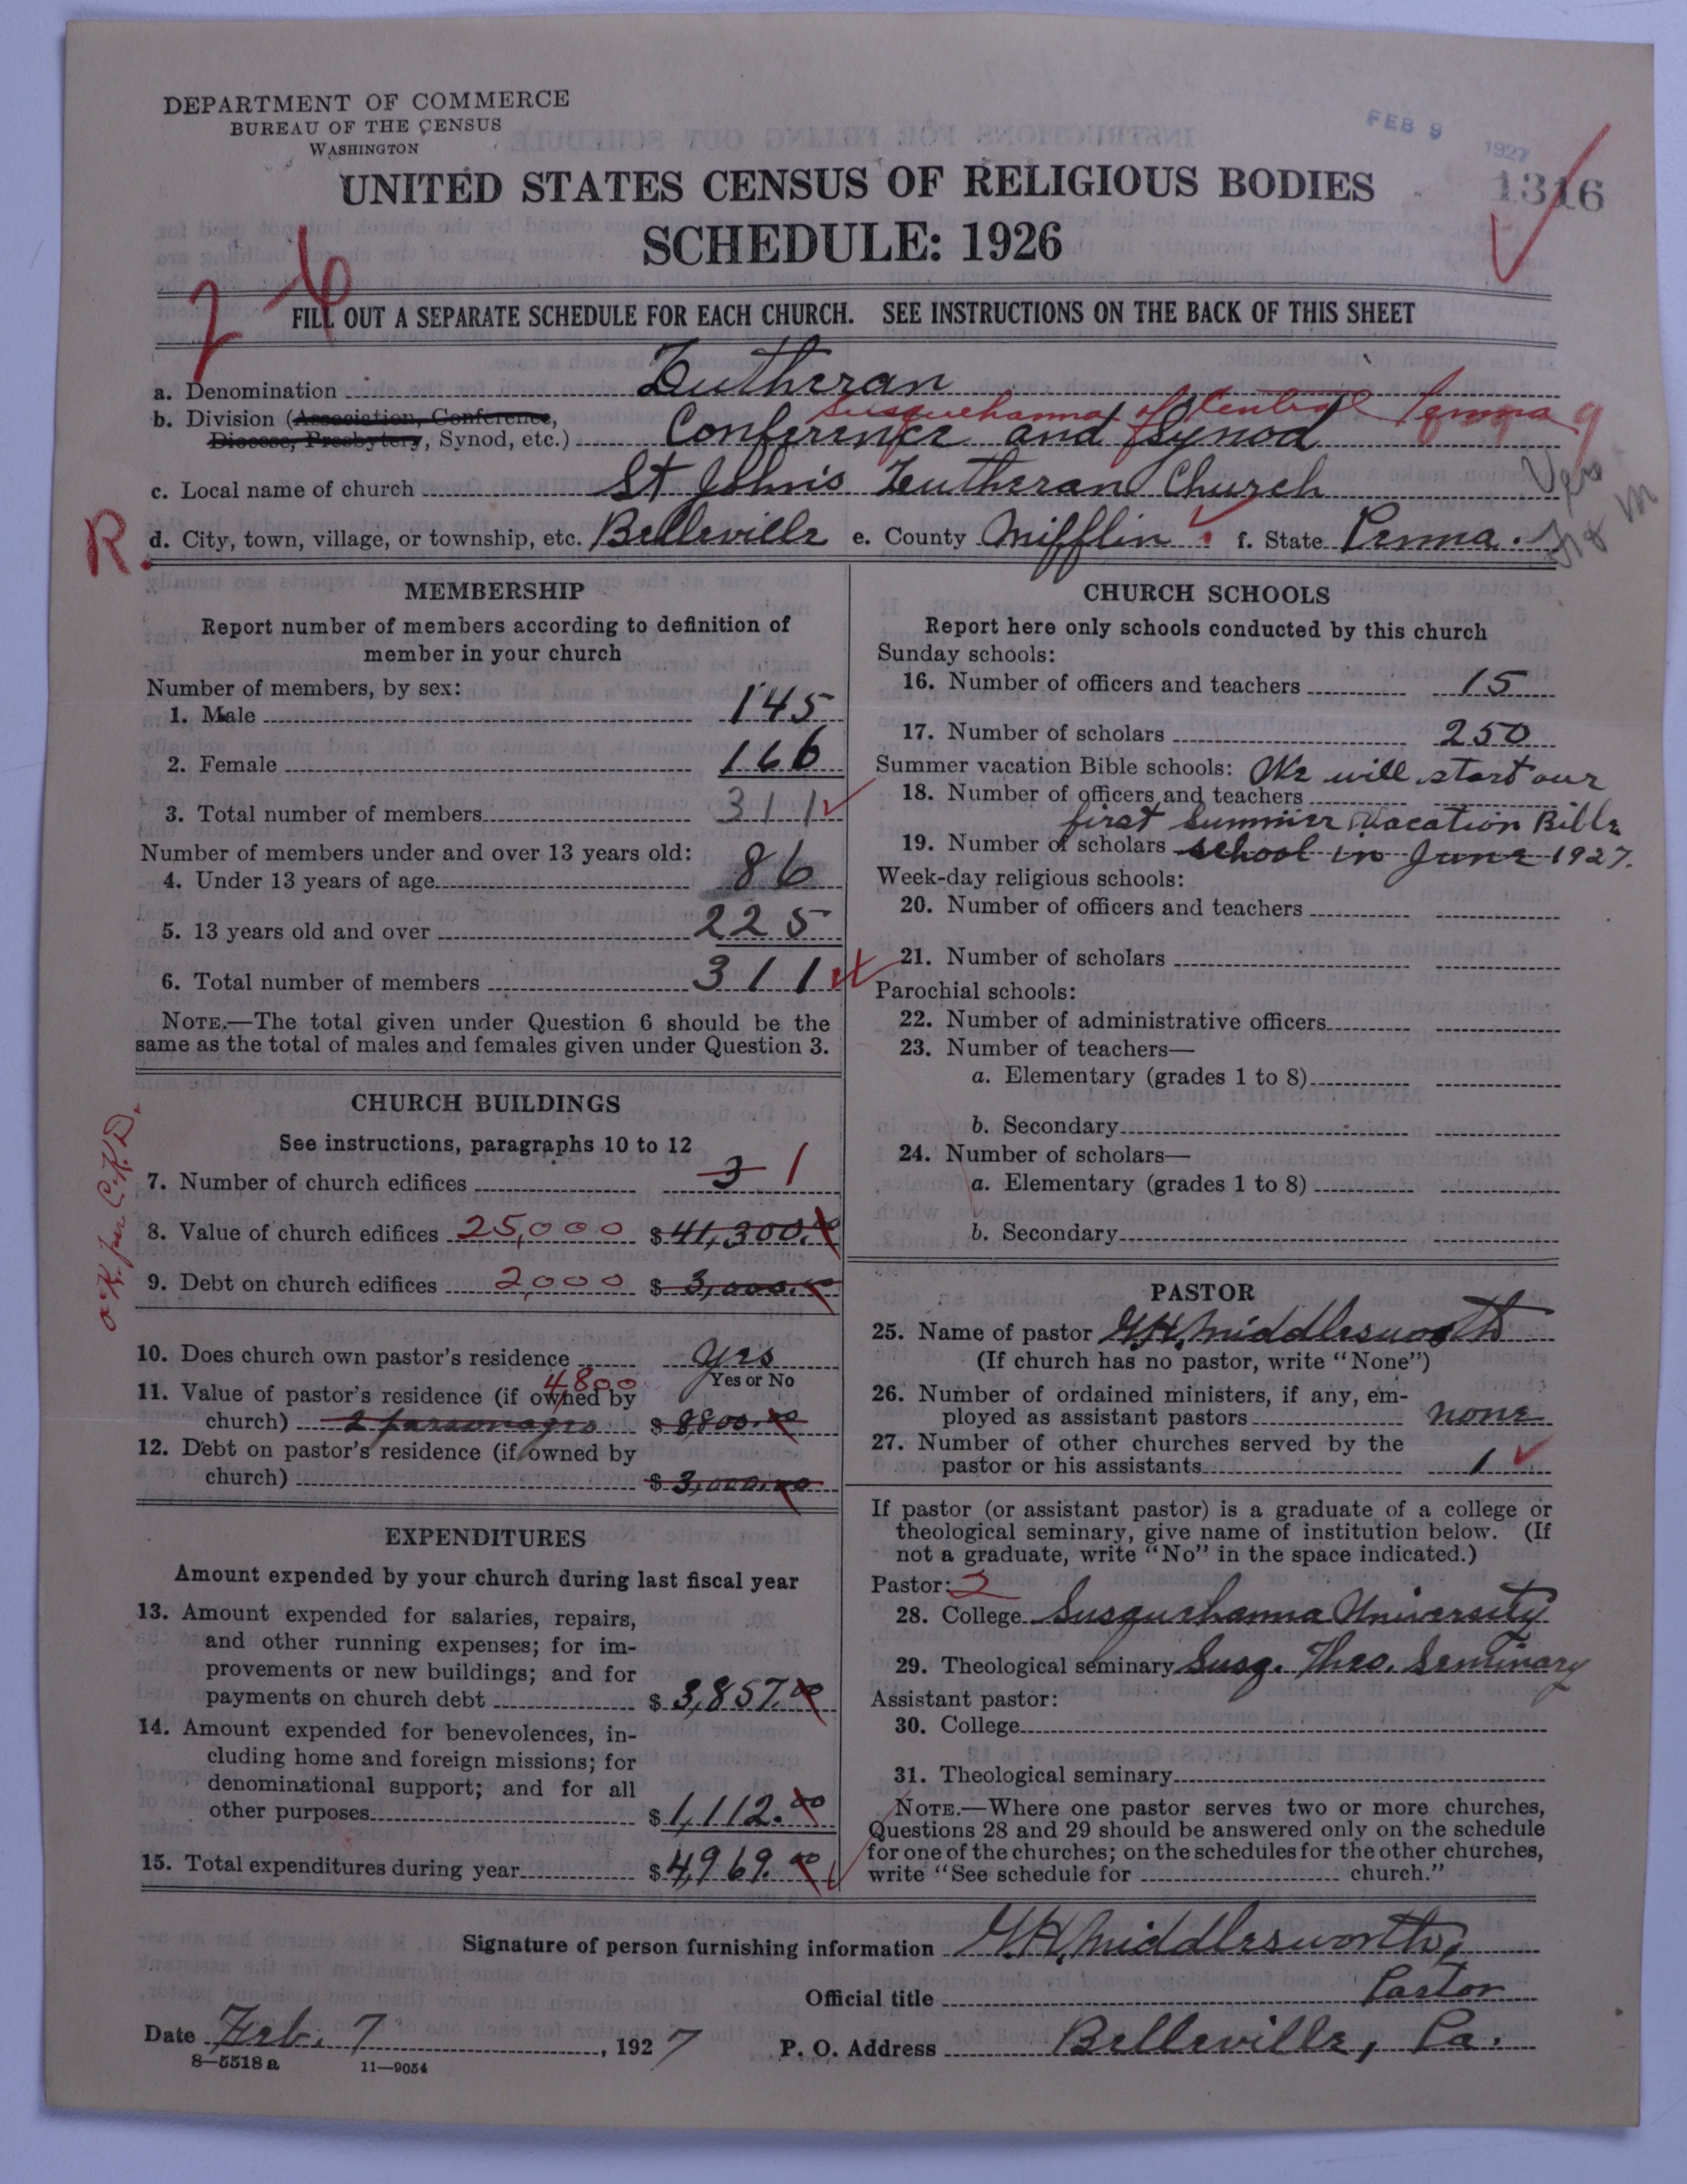 DEPARTMENT OF COMMERCE
BUREAU OF THE CENSUS
WASHINGTON
FEB 9 1927
1316
UNITED STATES CENSUS OF RELIGIOUS BODIES
SCHEDULE: 1926
2-6
FILL OUT A SEPARATE SCHEDULE FOR EACH CHURCH. SEE INSTRUCTIONS ON THE BACK OF THIS SHEET
a. Denomination Lutheran
Susquehanna of Central Penna 9
b. Division (Association, Conference,
Diocese, Presbytery, Synod, etc.) Conference and Synod
c. Local name of church St John's Lutheran Church
R. d. City, town, village, or township, etc. Belleville e. County Mifflin f. State Penna.
MEMBERSHIP
Report number of members according to definition of
member in your church
Number of members, by sex:
1. Male 145
2. Female 166
3. Total number of members 311
Number of members under and over 13 years old:
4. Under 13 years of age 86
5. 13 years old and over 225
6. Total number of members 311
NOTE.—The total given under Question 6 should be the
same as the total of males and females given under Question 3.
CHURCH BUILDINGS
See instructions, paragraphs 10 to 12
7. Number of church edifices 3 1
8. Value of church edifices 25,000 $41,300.00
9. Debt on church edifices 2,000 $3,000.00
O.K. per C.K.D.
10. Does church own pastor's residence Yes
Yes or No
11. Value of pastor's residence (if owned by 4800
church) 2 parsonages $8,800.00
12. Debt on pastor's residence (if owned by
church) $3,000.00
EXPENDITURES
Amount expended by your church during last fiscal year
13. Amount expended for salaries, repairs,
and other running expenses; for im-
provements or new buildings; and for
payments on church debt $3,857.00
14. Amount expended for benevolences, in-
cluding home and foreign missions; for
denominational support; and for all
other purposes $1,112.00
15. Total expenditures during year $4,969.00
CHURCH SCHOOLS
Report here only schools conducted by this church
Sunday schools:
16. Number of officers and teachers 15
17. Number of scholars 250
Summer vacation Bible schools: We will start our
18. Number of officers and teachers
first Summer Vacation Bible
19. Number of scholars school in June 1927.
Week-day religious schools:
20. Number of officers and teachers
21. Number of scholars
Parochial schools:
22. Number of administrative officers
23. Number of teachers—
a. Elementary (grades 1 to 8)
b. Secondary
24. Number of scholars—
a. Elementary (grades 1 to 8)
b. Secondary
PASTOR
25. Name of pastor G.H. Middlesworth
(If church has no pastor, write "None")
26. Number of ordained ministers, if any, em-
ployed as assistant pastors none
27. Number of other churches served by the
pastor or his assistants 1
If pastor (or assistant pastor) is a graduate of a college or
theological seminary, give name of institution below. (If
not a graduate, write "No" in the space indicated.)
Pastor: 2
28. College Susquehanna University
29. Theological seminary Susq. Theo. Seminary
Assistant pastor:
30. College
31. Theological seminary
NOTE.—Where one pastor serves two or more churches,
Questions 28 and 29 should be answered only on the schedule
for one of the churches; on the schedules for the other churches,
write "See schedule for church."
Signature of person furnishing information G.H. Middlesworth,
Official title Pastor
Date Feb. 7, 1927 P. O. Address Belleville, Pa.
8—5518a 11—9054